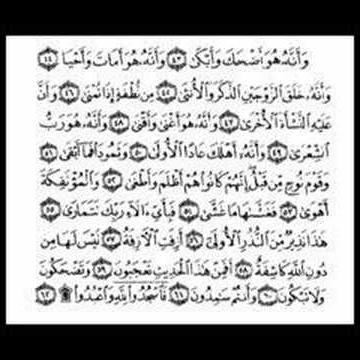 وَأَنَّهُۥ هُوَ أَضۡحَكَ وَأَبۡكَىٰ ٤٣ وَأَنَّهُۥ هُوَ أَمَاتَ وَأَحۡيَا ٤٤
وَأَنَّهُۥ خَلَقَ ٱلزَّوۡجَيۡنِ ٱلذَّكَرَ وَٱلۡأُنثَىٰ ٤٥ مِن نُّطۡفَةٍ إِذَا تُمۡنَىٰ ٤٦ وَأَنَّ
عَلَيۡهِ ٱلنَّشۡأَةَ ٱلۡأُخۡرَىٰ ٤٧ وَأَنَّهُۥ هُوَ أَغۡنَىٰ وَأَقۡنَىٰ ٤٨ وَأَنَّهُۥ هُوَ رَبُّ
ٱلشِّعۡرَىٰ ٤٩ وَأَنَّهُۥٓ أَهۡلَكَ عَادًا ٱلۡأُولَىٰ ٥٠ وَثَمُودَاْ فَمَآ أَبۡقَىٰ ٥١
وَقَوۡمَ نُوحٍ مِّن قَبۡلُ إِنَّهُمۡ كَانُواْ هُمۡ أَظۡلَمَ وَأَطۡغَىٰ ٥٢ وَٱلۡمُؤۡتَفِكَةَ
أَهۡوَىٰ ٥٣ فَغَشَّىٰهَا مَا غَشَّىٰ ٥٤ فَبِأَيِّ ءَالَآءِ رَبِّكَ تَتَمَارَىٰ ٥٥
هَٰذَا نَذِيرٌ مِّنَ ٱلنُّذُرِ ٱلۡأُولَىٰٓ ٥٦ أَزِفَتِ ٱلۡأٓزِفَةُ ٥٧ لَيۡسَ لَهَا مِن
دُونِ ٱللَّهِ كَاشِفَةٌ ٥٨ أَفَمِنۡ هَٰذَا ٱلۡحَدِيثِ تَعۡجَبُونَ ٥٩ وَتَضۡحَكُونَ
وَلَا تَبۡكُونَ ٦٠ وَأَنتُمۡ سَٰمِدُونَ ٦١ فَٱسۡجُدُواْ لِلَّهِ وَٱعۡبُدُواْ ۩ ٦٢